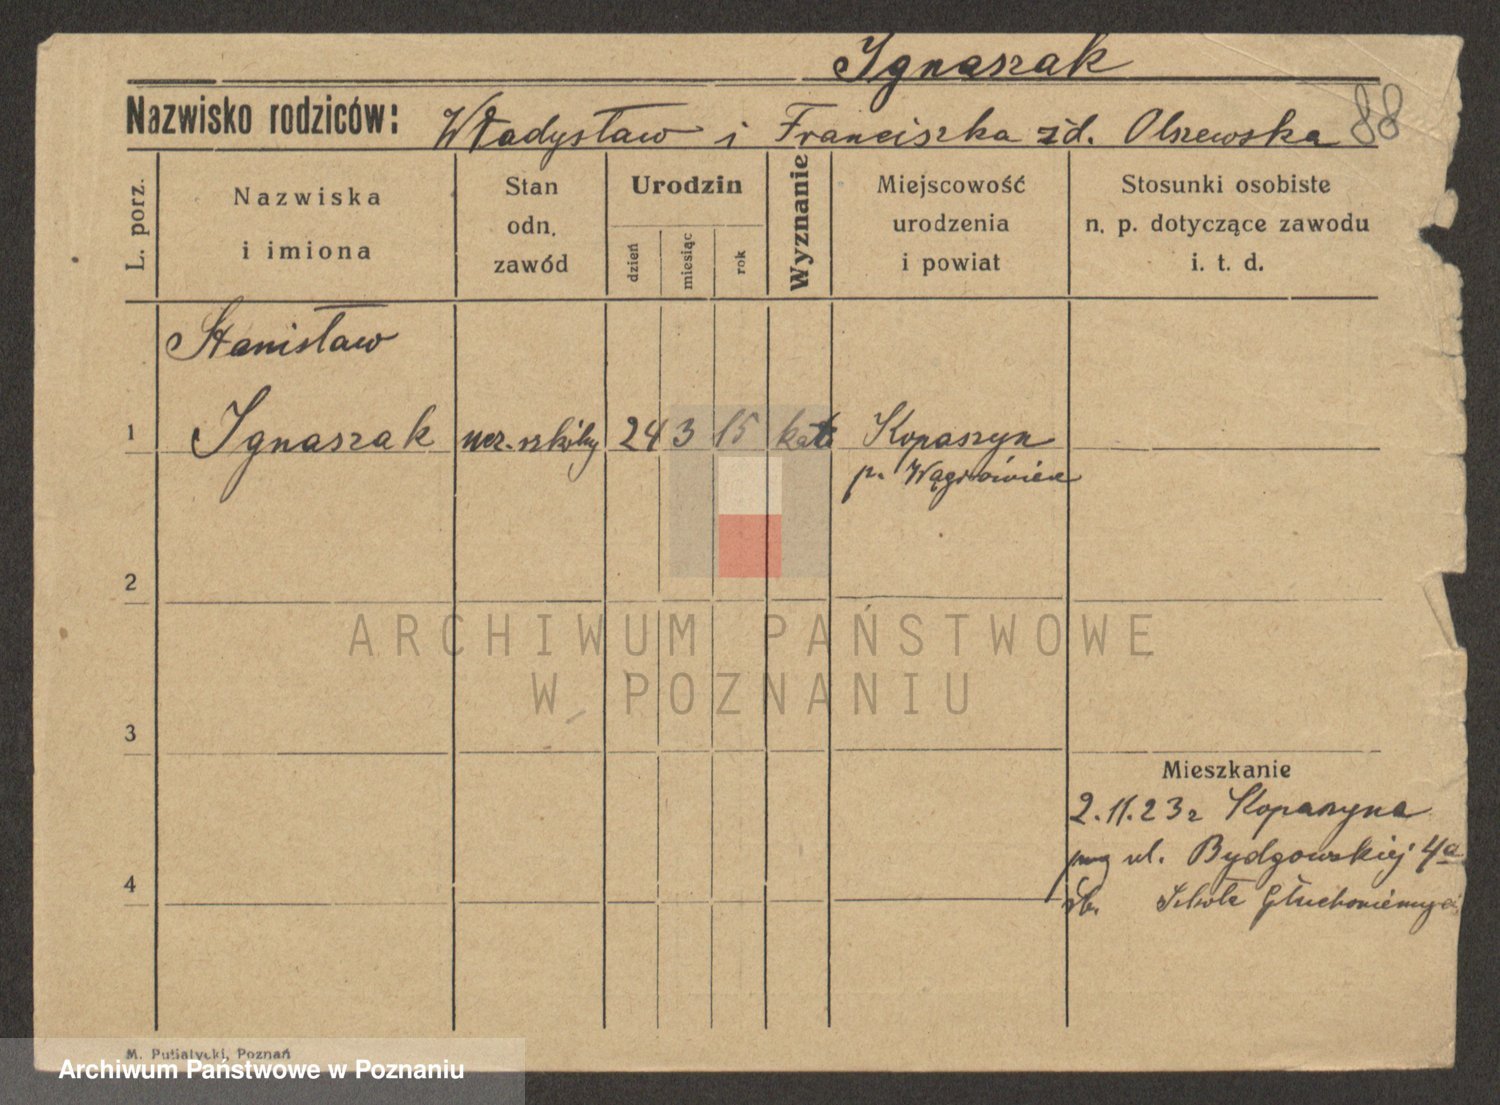 Ignaszak
Nazwisko rodziców: Władysław i Franciszka zd. Olszewska 88
L. porz.
Nazwiska
i imiona
Stan
odn.
zawód
Urodzin
dzień
miesiąc
rok
Wyznanie
Miejscowość
urodzenia
i powiat
Stosunki osobiste
n. p. dotyczące zawodu
i. t. d.
Stanisław
1 Ignaszak ucz. szkólny 24 3 15 kat Kopaszyn
p. Wągrówiec
2
ARCHIWUM PAŃSTWOWE
W POZNANIU
3
Mieszkanie
2.11.23 r Kopaszyna
ul. Bydgowskiej 4a
4
Szkoła Głuchoniemych
M. Putiatycki, Poznań
Archiwum Państwowe w Poznaniu